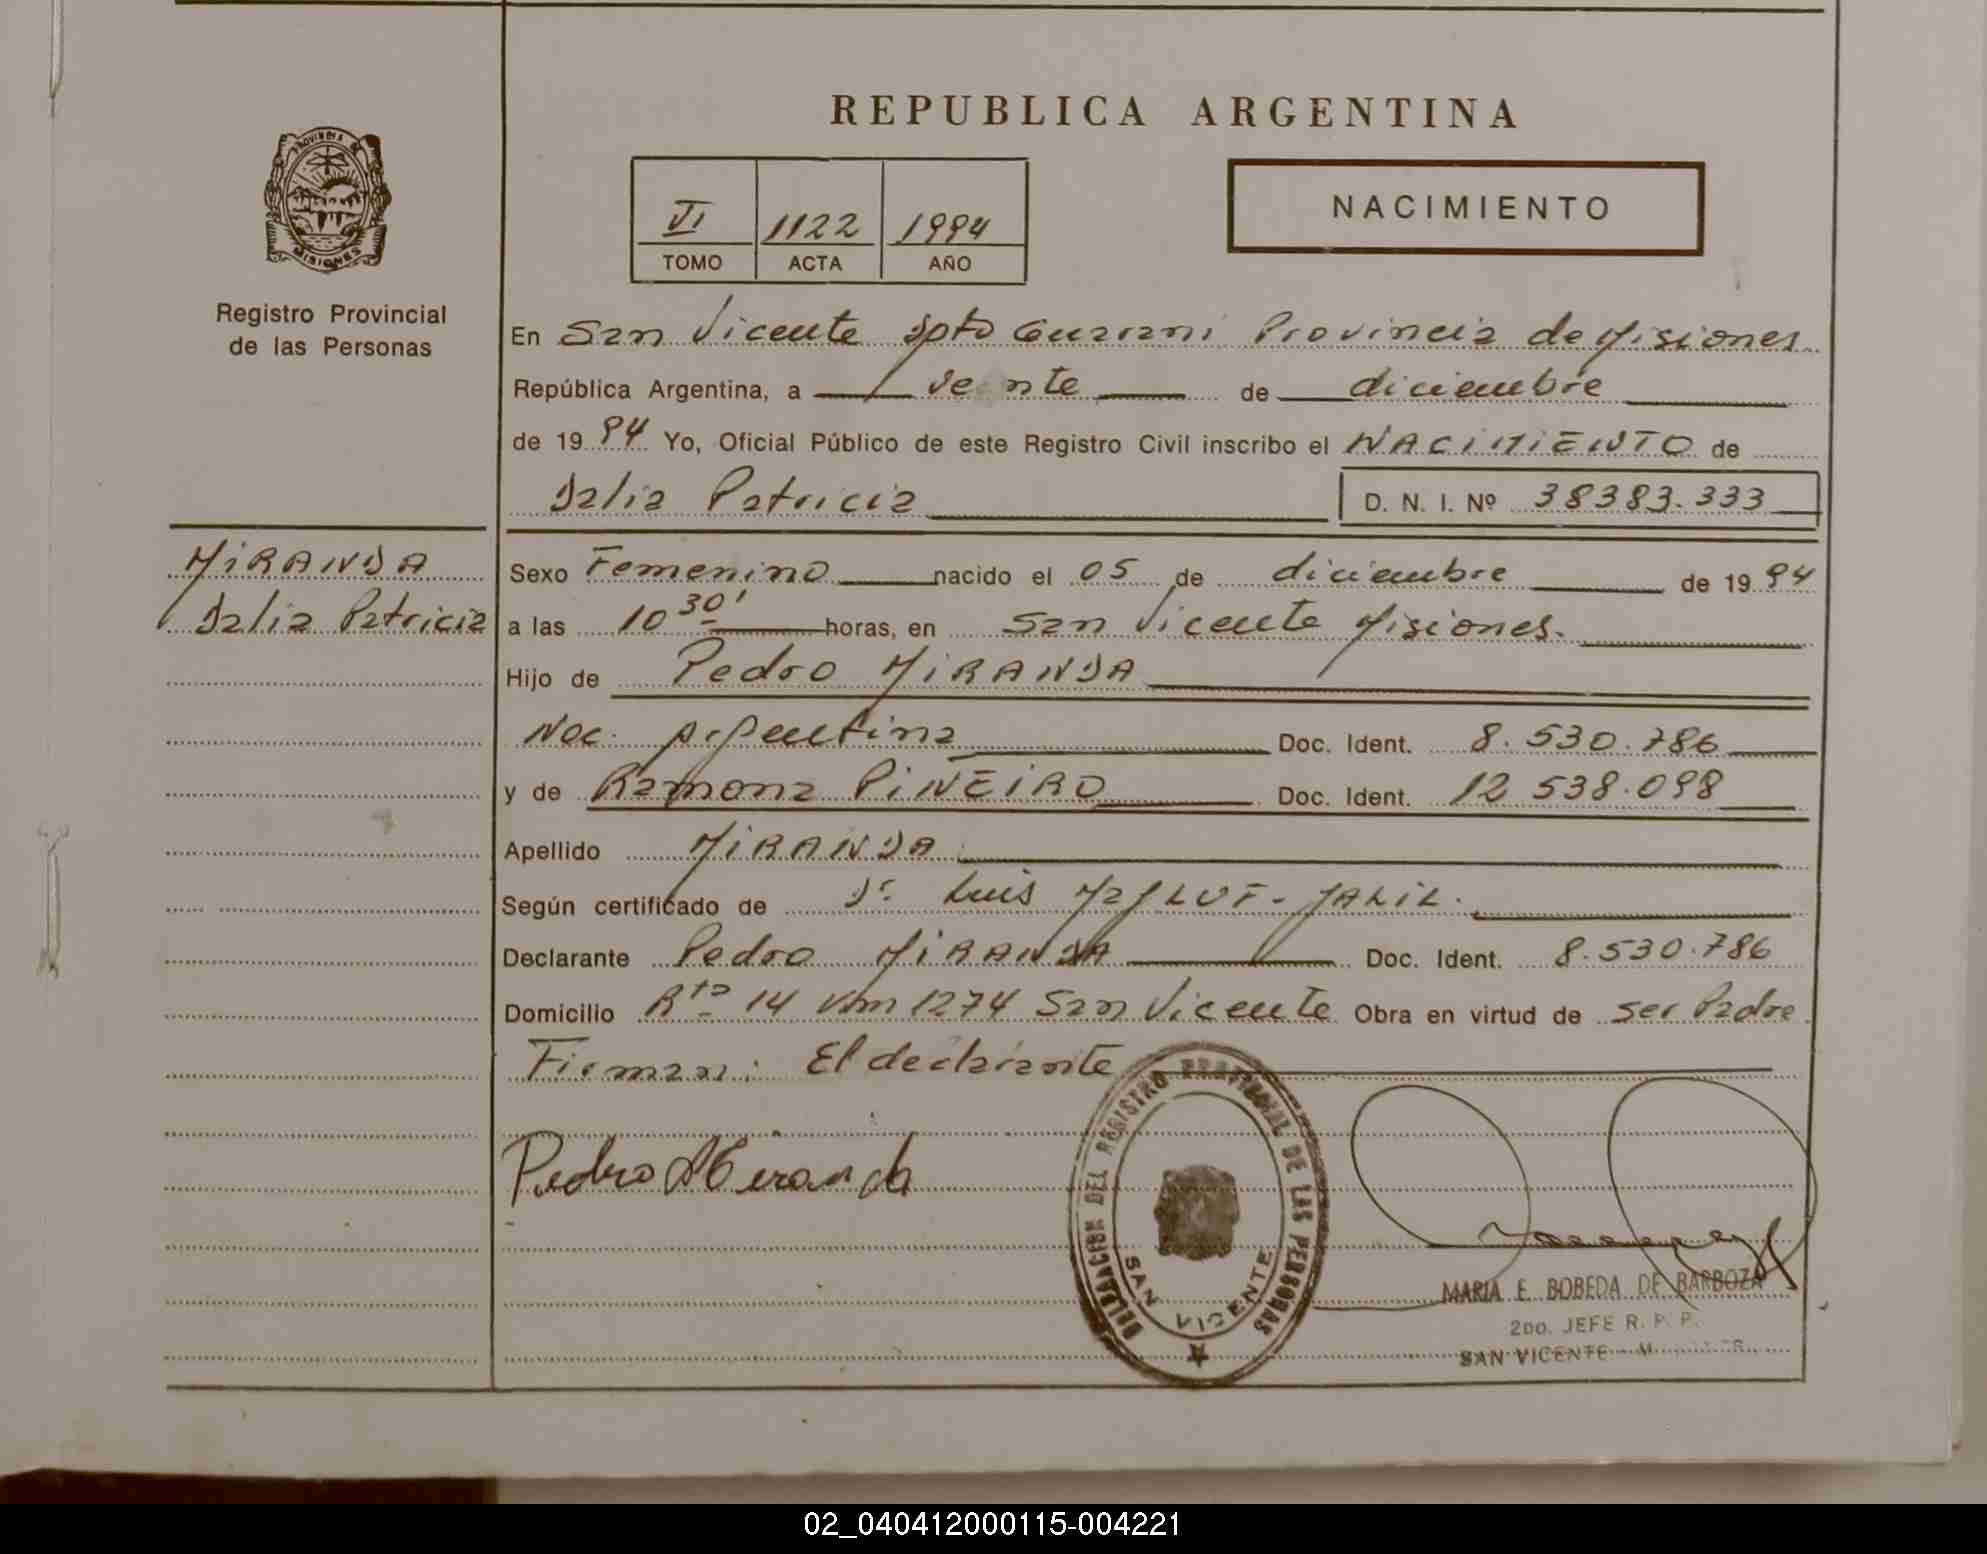 REPUBLICA ARGENTINA
PROVINCIA DE
MISIONES
Registro Provincial
de las Personas
VI 1122 1994
TOMO ACTA AÑO
NACIMIENTO
En San Vicente Dpto Guarani Provincia de Misiones
República Argentina, a veinte de diciembre
de 1994 Yo, Oficial Público de este Registro Civil inscribo el NACIMIENTO de
Dalia Patricia D. N. I. Nº 38383.333
MIRANDA
Dalia Patricia
Sexo Femenino nacido el 05 de diciembre de 1994
a las 10 30' horas, en San Vicente Misiones.
Hijo de Pedro MIRANDA
Nac. argentina Doc. Ident. 8.530.786
y de Ramona PIÑEIRO Doc. Ident. 12 538.098
Apellido MIRANDA
Según certificado de Dr. Luis JALIL.
Declarante Pedro MIRANDA Doc. Ident. 8.530.786
Domicilio Rta 14 Km 1274 San Vicente Obra en virtud de ser Padre
Firman: El declarante
Pedro Miranda
DELEGACION DEL REGISTRO PROVINCIAL DE LAS PERSONAS
SAN VICENTE
MARIA E. BOBEDA DE BARBOZA
2DO. JEFE R. P. P.
SAN VICENTE
02_040412000115-004221